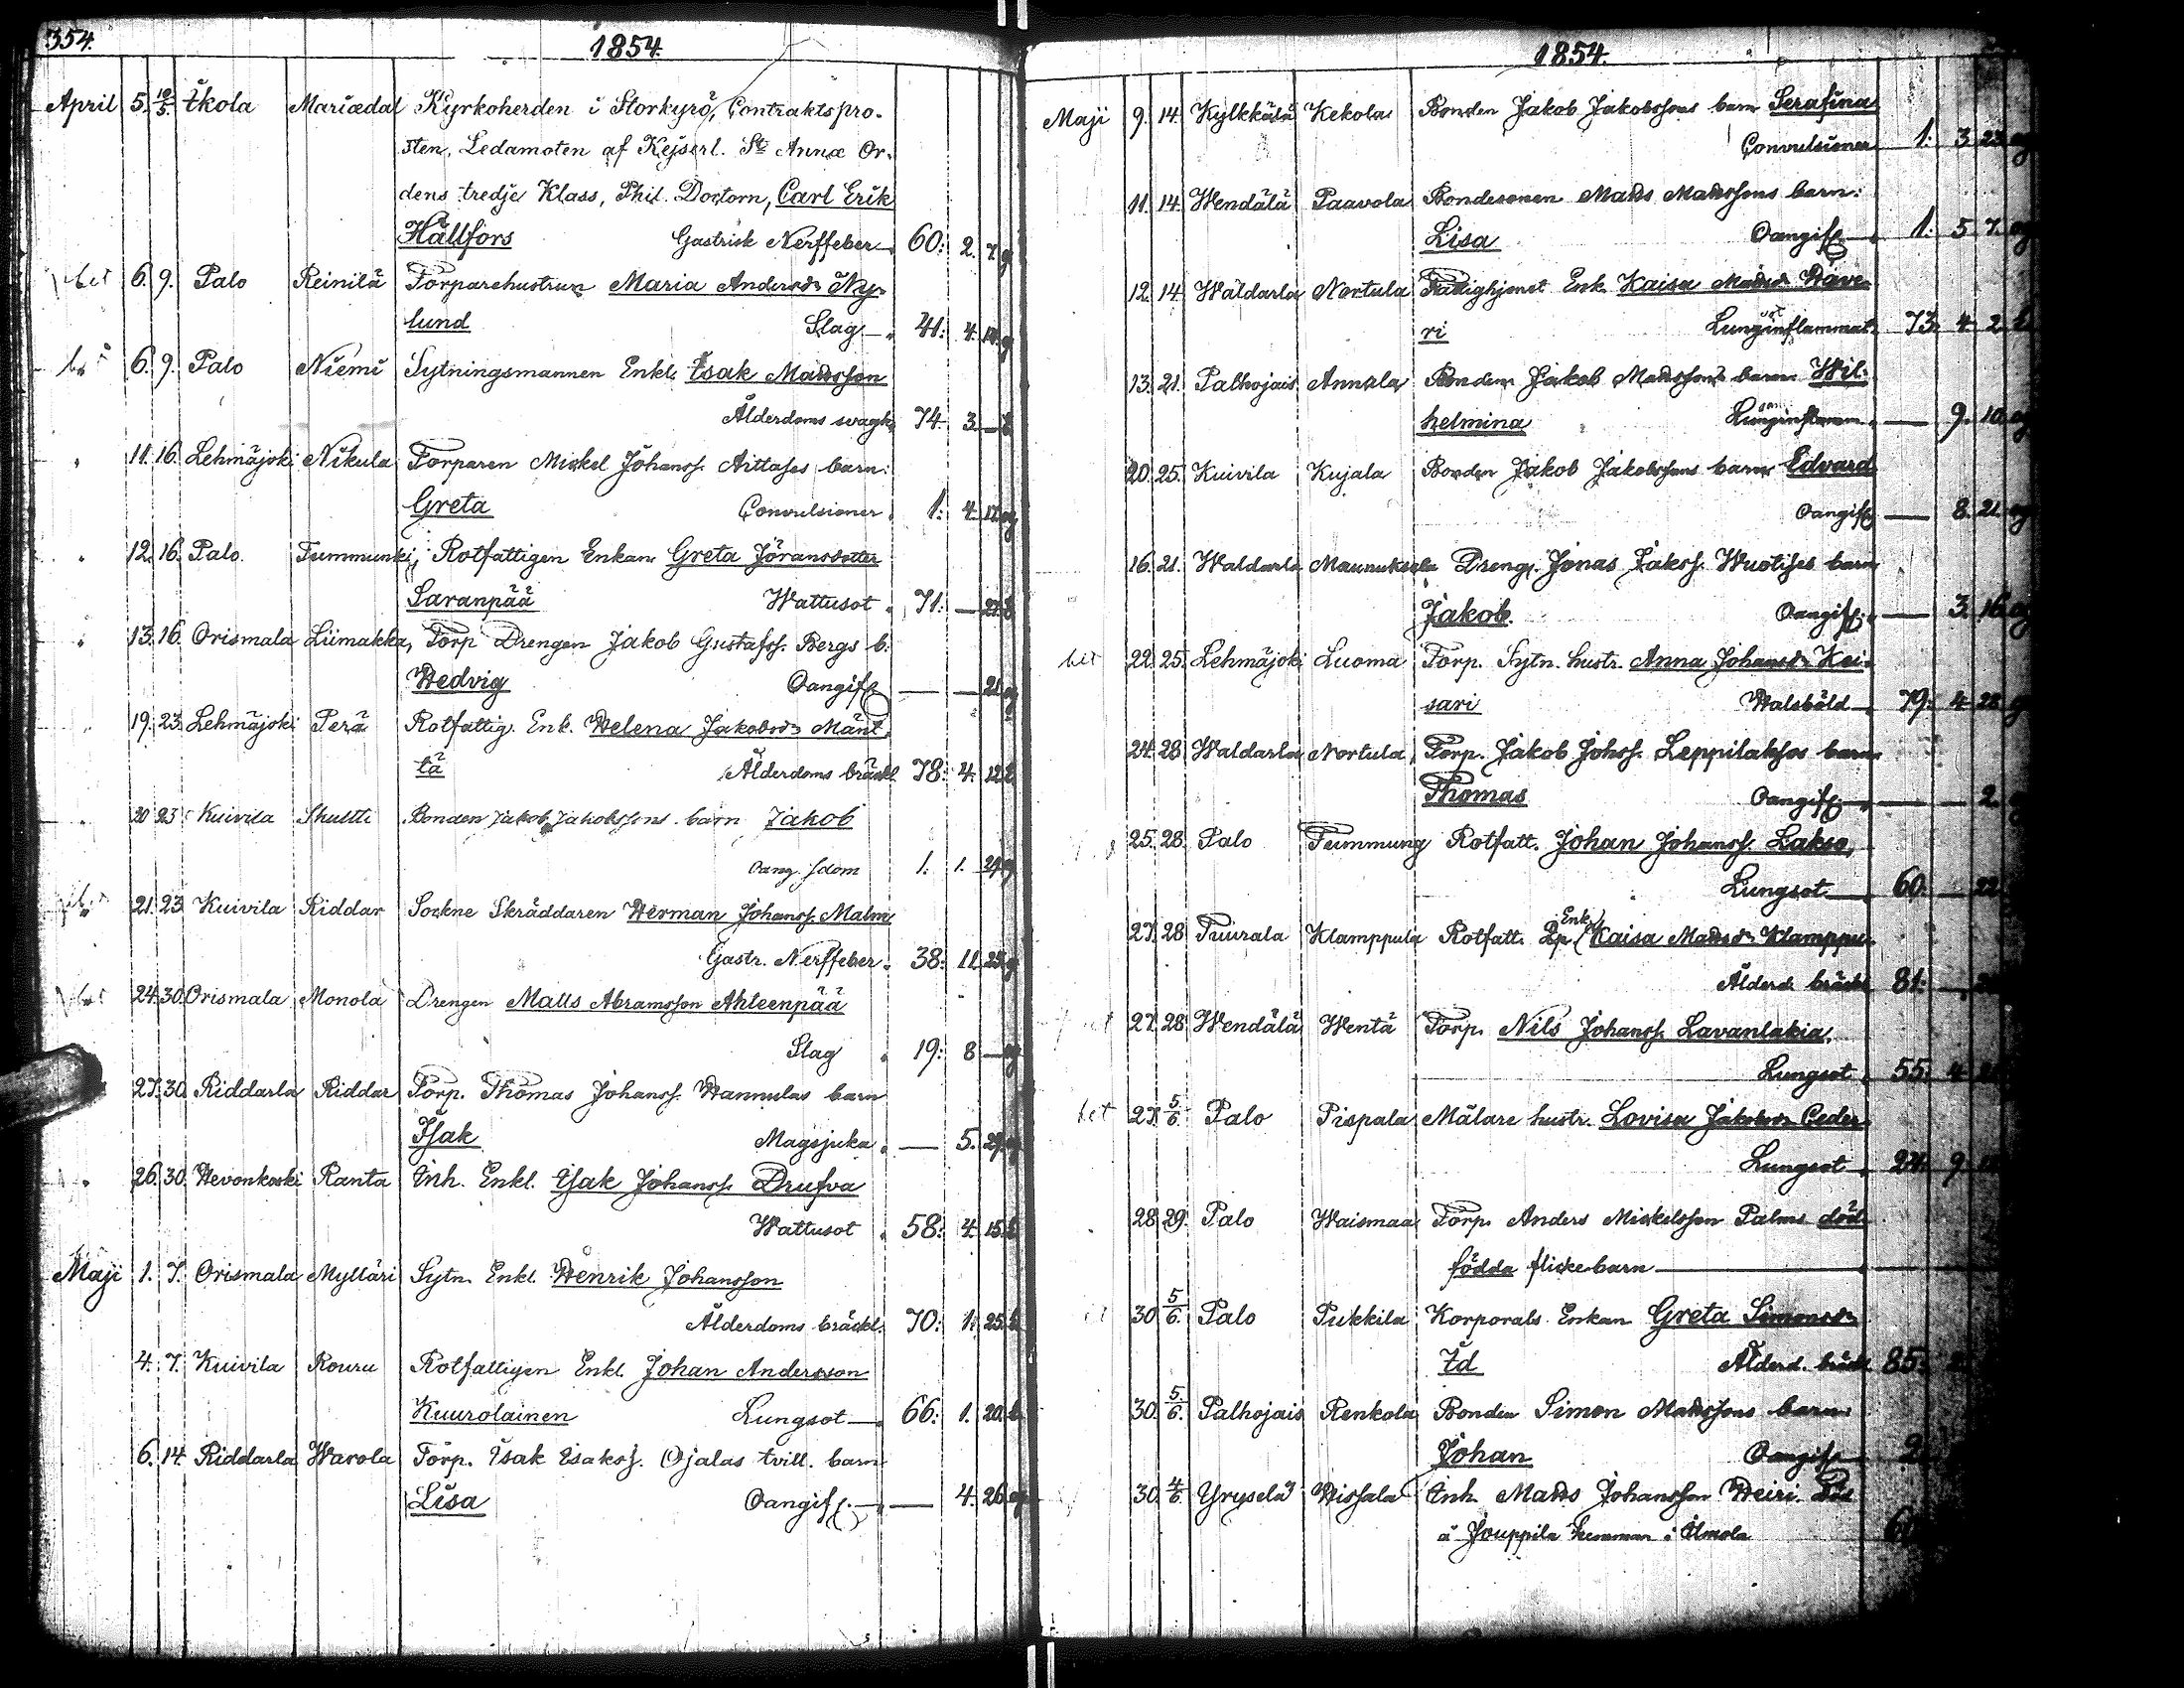 354.
1854.
April 5. 10/5. Ikola Mariædal Kyrkoherden i Storkyrö, Contraktspro-
sten, Ledamoten af Kejserl. S:t Annæ Or-
dens tredje Klass, Phil. Doctorn, Carl Erik
Hällfors Gastrisk Nerffeber 60: 2. 7. g
6. 9. Palo Reinilä Torparehustrun Maria Andersd:r Ny-
lund Slag 41: 4. 14. g
6. 9. Palo Niemi Sytningsmannen Enkl. Isak Mattsson
Ålderdoms svagh. 74. 3. —
11. 16. Lehmäjoki Nikula Torparen Mickel Johanss. Aittases barn:
Greta Convulsioner 1: 4. 17. og
12. 16. Palo. Tummunki, Rotfattigen Enkan Greta Jöransdotter
Saranpää Wattusot 71: — 27.
13. 16. Orismala Liimakka, Torp Drengen Jakob Gustafss. Bergs b.
Hedvig Oangif. — — 21. og
19. 23. Lehmäjoki Perä Rotfattig. Enk. Helena Jakobsd:r Mänt-
tä Ålderdoms bräckl. 78: 4. 12.
20 23 Kuivila Skultti Bonden Jakob Jakobssons barn Jakob
Oang. sdom 1. 1. 24
21. 23 Kuivila Riddar Sockne Skräddaren Herman Johanss. Malm
Gastr. Nerffeber. 38: 11. 25. g
24. 30. Orismala Monola Drengen Matts Abramsson Ahteenpää
Slag 19: 8 — og
27. 30. Riddarla Riddar Torp. Thomas Johanss. Hannulas barn
Isak Magsjuka — 5. 29.
26. 30. Hevonkoski Ranta Inh. Enkl. Isak Johanss. Drufva
Wattusot 58: 4. 15.
Maji 1. 7. Orismala Mylläri Sytn. Enkl. Henrik Johansson
Ålderdoms bräckl. 70: 1. 25.
4. 7. Kuivila Rouru Rotfattigen Enkl. Johan Andersson
Kuurolainen Lungsot 66: 1. 20.
6. 14. Riddarla Warola Torp. Isak Isakss. Ojalas tvill. barn
Lisa Oangif. — 4. 26
1854.
Maji 9. 14. Kylkkälä Kekola Bonden Jakob Jakobssons barn Serafina
Convulsioner 1: 3. 23. og
11. 14. Wendälä Paavola Bondesonen Matts Mattssons barn:
Lisa Oangif. 1: 5 7. og
12. 14. Waldarla Nortula Fattighjonet Enk. Kaisa Mattsd:r Have-
ri Lunginflammat. 73. 4. 2.
13. 21. Palhojais Annala Bonden Jakob Mattssons barn Wil-
helmina Lunginflamm. — 9. 10. og
20. 25. Kuivila Kujala Bonden Jakob Jakobssons barn Edvard
Oangif. — 8. 21. og
16. 21. Waldarla Maunuksela Dreng. Jonas Jakss. Wuotises barn
Jakob. Oangif. — 3. 16. og
bet 22. 25. Lehmäjoki Luoma Torp. Sytn. hustr. Anna Johansd:r Kei-
sari Halsböld 79: 4. 28 g
24. 28 Waldarla Nortula Torp. Jakob Johss. Leppilaksos barn
Thomas Oangif. — — 2.
25. 28. Palo Tummung Rotfatt. Johan Johanss. Lakso,
Lungsot 60. — 22.
27. 28 Tuurala Klamppula Rotfatt. Enk. Kaisa Mattsd:r Klamppu
Ålderd. bräckl 81: —
27. 28 Wendälä Wentä Torp. Nils Johanss. Lavanlakia,
Lungsot 55. 4.
bet 27. 5/6. Palo Pispala Målare hustr. Lovisa Jakobsd:r Ceder
Lungsot 9
28. 29. Palo Waismaa Torp. Anders Mickelsson Palms död-
födda flickebarn
30. 5/6. Palo Pukkila Korporals Enkan Greta Simonsd:r
Id Ålderd. bräckl 85:
30. 5/6. Palhojais Renkola Bonden Simon Mattssons barn
Johan Oangif. 2
30. 4/6. Yryselä Hissala Inh. Matts Johansson Heiri. Död
å Jouppila hemman i Ilmola